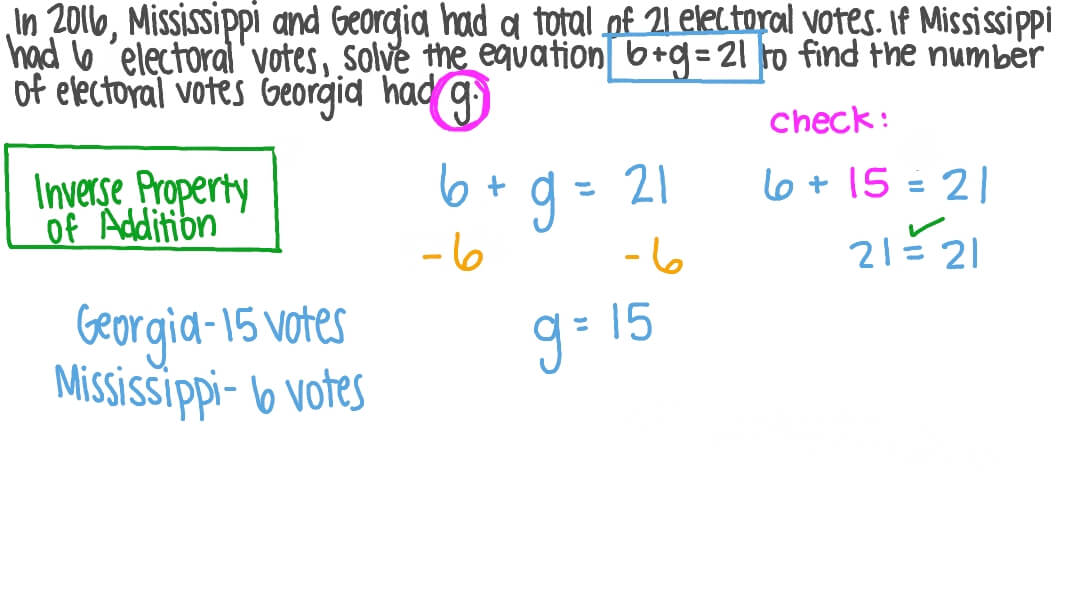 In 2016, Mississippi and Georgia had a total of 21 electoral votes. If Mississippi
had 6 electoral votes, solve the equation 6+g=21 to find the number
of electoral votes Georgia had g.
check:
Inverse Property
of Addition
6 + g = 21
-6 -6
g = 15
6 + 15 = 21
21 = 21 ✓
Georgia-15 votes
Mississippi- 6 votes